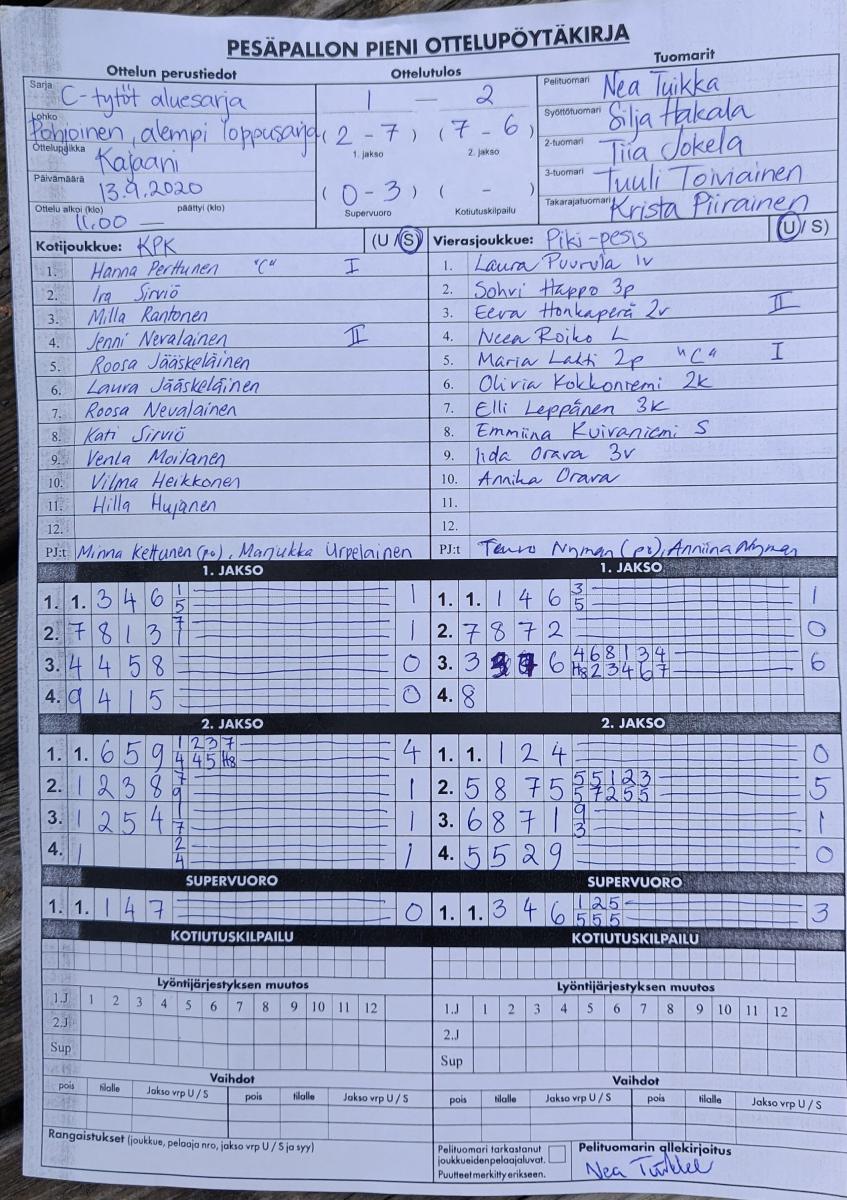 PESÄPALLON PIENI OTTELUPÖYTÄKIRJA
Ottelun perustiedot
Ottelutulos
Tuomarit
Sarja C-tytöt aluesarja
Lohko Pohjoinen, alempi loppusarja
Ottelupaikka Kajaani
Päivämäärä 13.9.2020
Ottelu alkoi (klo) 11.00 — päättyi (klo)
1 — 2
(2 - 7) (7 - 6)
1. jakso 2. jakso
(0 - 3) ( - )
Supervuoro Kotiutuskilpailu
Pelituomari Nea Tuikka
Syöttötuomari Silja Hakala
2-tuomari Tiia Jokela
3-tuomari Tuuli Toiviainen
Takarajatuomari Krista Piirainen
Kotijoukkue: KPK (U / S)
1. Hanna Perttunen "C" I
2. Ira Sirviö
3. Milla Rantonen
4. Jenni Nevalainen II
5. Roosa Jääskeläinen
6. Laura Jääskeläinen
7. Roosa Nevalainen
8. Kati Sirviö
9. Venla Moilanen
10. Vilma Heikkonen
11. Hilla Hujanen
12.
PJ:t Minna Kettunen (po), Marjukka Urpelainen
Vierasjoukkue: Piki-pesis (U / S)
1. Laura Puurula 1v
2. Sohvi Happo 3p
3. Eeva Honkaperä 2v II
4. Neea Roiko L
5. Maria Lahti 2p "C" I
6. Olivia Kokkoniemi 2k
7. Elli Leppänen 3k
8. Emmiina Kuivaniemi S
9. Iida Orava 3v
10. Annika Orava
11.
12.
PJ:t Nyman (po), Anniina Nyman
1. JAKSO
1. 1. 3 4 6 1 1
5
2. 7 8 1 3 7 1
1
3. 4 4 5 8 0
4. 9 4 1 5 0
1. JAKSO
1. 1. 1 4 6 3 1
5
2. 7 8 7 2 0
3. 3 6 4 6 8 1 3 4 6
H8 2 3 4 6 7
4. 8
2. JAKSO
1. 1. 6 5 9 1 2 3 7 4
4 4 5 H8
2. 1 2 3 8 7 1
9
3. 1 2 5 4 1 1
7
4. 1 2 1
4
2. JAKSO
1. 1. 1 2 4 0
2. 5 8 7 5 5 5 1 2 3 5
5 7 2 5 5
3. 6 8 7 1 9 1
3
4. 5 5 2 9 0
SUPERVUORO
1. 1. 1 4 7 0
SUPERVUORO
1. 1. 3 4 6 1 2 5 3
5 5 5
KOTIUTUSKILPAILU
KOTIUTUSKILPAILU
Lyöntijärjestyksen muutos
1.J 1 2 3 4 5 6 7 8 9 10 11 12
2.J
Sup
Lyöntijärjestyksen muutos
1.J 1 2 3 4 5 6 7 8 9 10 11 12
2.J
Sup
Vaihdot
pois tilalle Jakso vrp U / S pois tilalle Jakso vrp U / S
Vaihdot
pois tilalle Jakso vrp U / S pois tilalle Jakso vrp U / S
Rangaistukset (joukkue, pelaaja nro, jakso vrp U / S ja syy)
Pelituomari tarkastanut
joukkueiden pelaajaluvat.
Puutteet merkitty erikseen.
Pelituomarin allekirjoitus
Nea Tuikka